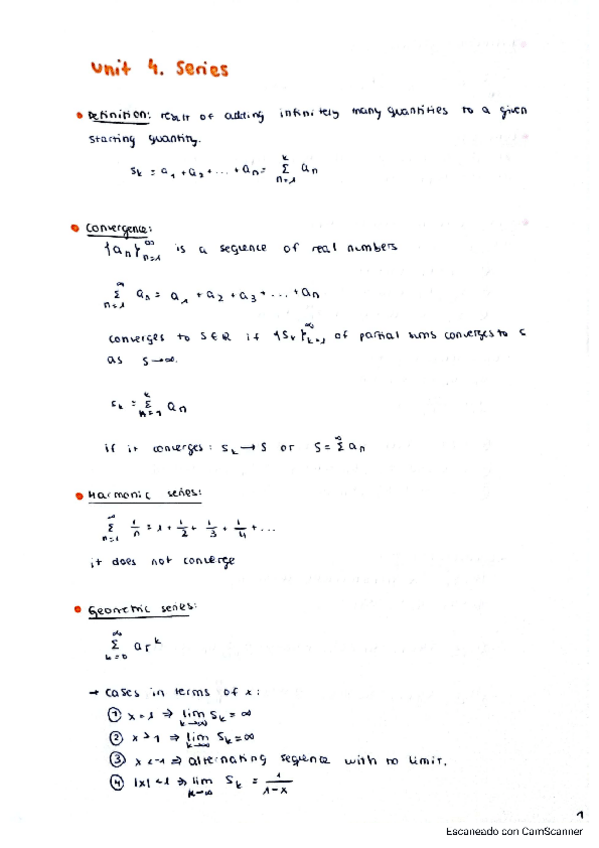 Unit 4. Series
• Definition: result of adding infinitely many quantities to a given
starting quantity.
Sₖ = a₁ + a₂ + ... + aₙ = Σₙ₌₁ᵏ aₙ
• Convergence:
{aₙ}ₙ₌₁^∞ is a sequence of real numbers
Σₙ₌₁^∞ aₙ = a₁ + a₂ + a₃ + ... + aₙ
converges to S∈R if {Sₖ}ₖ₌₁^∞ of partial sums converges to S
as S→∞.
Sₖ = Σₙ₌₁ᵏ aₙ
if it converges: Sₖ → S or S = Σ^∞ aₙ
• Harmonic series:
Σₙ₌₁^∞ 1/n = 1 + 1/2 + 1/3 + 1/4 + ...
it does not converge
• Geometric series:
Σₖ₌₀^∞ arᵏ
→ cases in terms of x:
① x = 1 ⇒ lim k→∞ Sₖ = ∞
② x > 1 ⇒ lim k→∞ Sₖ = ∞
③ x < -1 ⇒ alternating sequence with no limit.
④ |x| < 1 ⇒ lim k→∞ Sₖ = 1/(1-x)
1
Escaneado con CamScanner